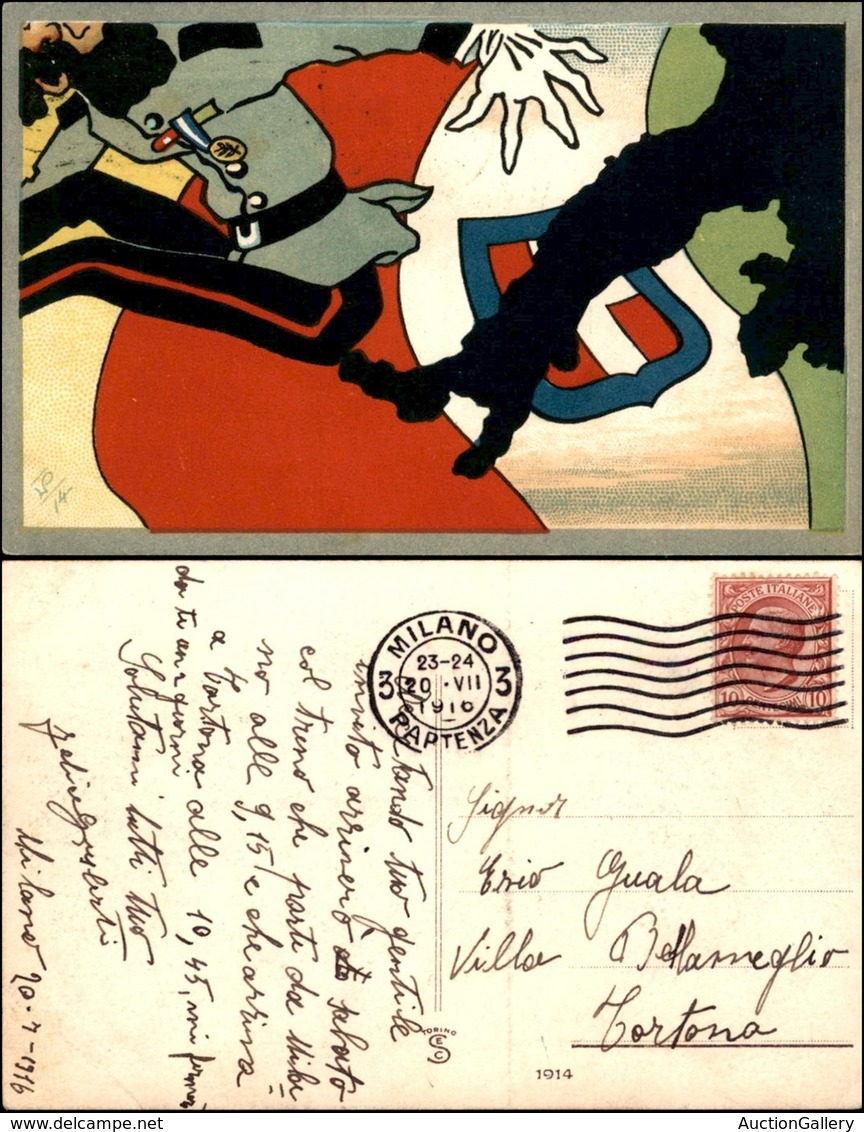 MILANO
23-24
3 20 · VII 3
1916
PARTENZA
POSTE ITALIANE
10 10
Accettando tuo gentile
invito arriverò sabato
col treno che parte da Mila
no alle 9,15 e che arriva
a Tortona alle 10,45, mi fermerò
da te un 2 giorni
Salutami tutti tuo
Milano 20-7-1916
Signor
Ezio Guala
Villa
Tortona
TORINO
1914
AuctionGallery